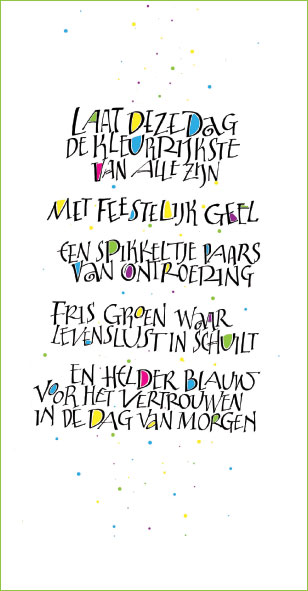 LAAT DEZE DAG
DE KLEURRIJKSTE
VAN ALLE ZIJN
MET FEESTELIJK GEEL
EEN SPIKKELTJE PAARS
VAN ONTROERING
FRIS GROEN WAAR
LEVENSLUST IN SCHUILT
EN HELDER BLAUW
VOOR HET VERTROUWEN
IN DE DAG VAN MORGEN